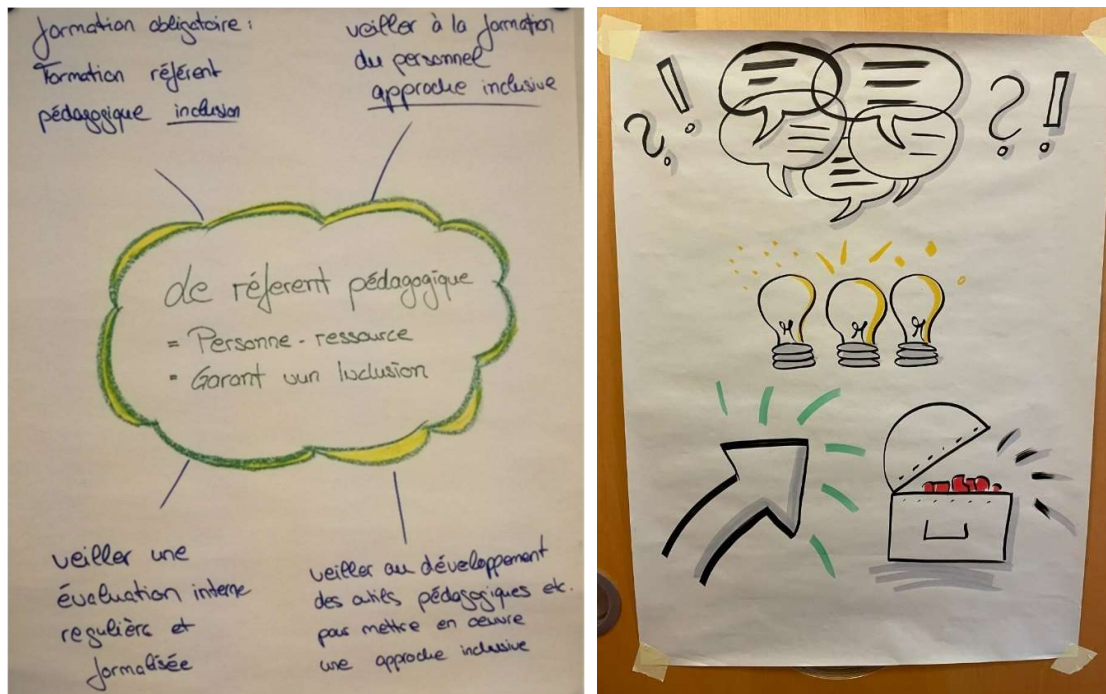 formation obligatoire :
Formation référent
pédagogique inclusion
veiller à la formation
du personnel
approche inclusive
de réferent pédagogique
= Personne-ressource
= Garant vun Inclusion
veiller une
évaluation interne
regulière et
formalisée
veiller au développement
des outils pédagogiques etc.
pour mettre en oeuvre
une approche inclusive
?!
?!